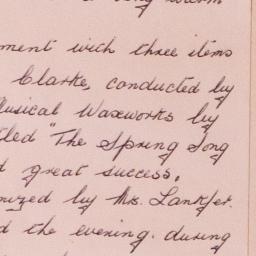 ment with three items
Clarke, conducted by
Musical Waxworks by
tled "The Spring Song
d great success.
nized by Mrs. Lankfer.
d the evening. during